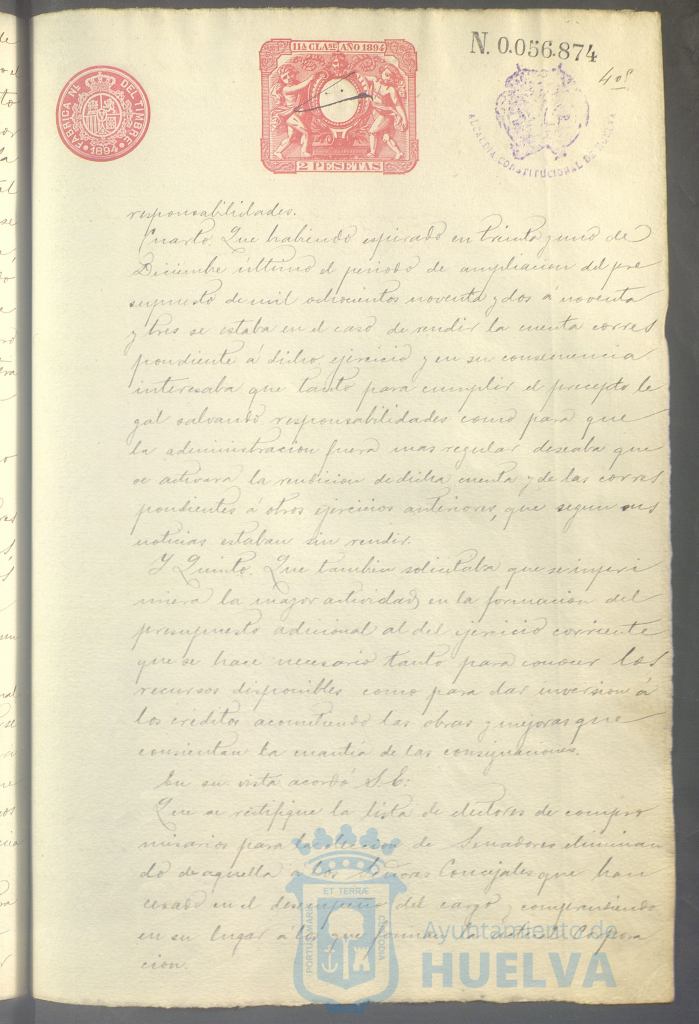 11ª CLASE AÑO 1894
2 PESETAS
FABRICA NL. DEL TIMBRE
1894
N. 0.056.874
ALCALDIA CONSTITUCIONAL DE HUELVA
responsabilidades.
Cuarto. Que habiendo espirado en treinta y uno de
Diciembre último el periodo de ampliacion del pre
supuesto de mil ochocientos noventa y dos á noventa
y tres se estaba en el caso de rendir la cuenta corres
pondiente á dicho ejercicio y en su consecuencia
interesaba que tanto para cumplir el precepto le
gal salvando responsabilidades como para que
la administracion fuera mas regular deseaba que
se activara la rendicion de dicha cuenta y de las corres
pondientes á otros ejercicios anteriores, que segun sus
noticias estaban sin rendir.
Y Quinto. Que tambien solicitaba que se impri
miera la mayor actividad en la formacion del
presupuesto adicional al del ejercicio corriente
que se hace necesario tanto para conocer los
recursos disponibles como para dar inversion á
los créditos acometiendo las obras y mejoras que
consientan la cuantía de las consignaciones.
En su vista acordó S.E:
Que se rectifique la lista de electores de compro
misarios para la eleccion de Senadores eliminan
do de aquella a los Señores Concejales que han
cesado en el desempeño del cargo y comprendiendo
en su lugar á los que forman la actual Corpora
cion.
PORTUS MARIS ET TERRÆ CUSTODIA
Ayuntamiento de
HUELVA